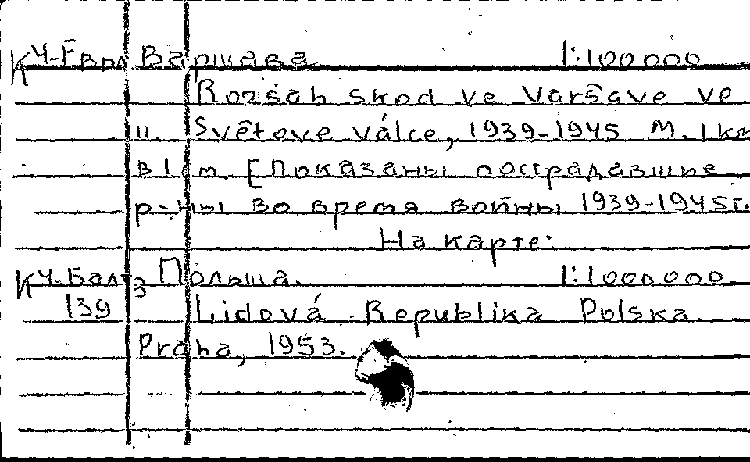 К4-Евр. Варшава. 1:100 000
Rozsah škod ve Varšave ve
II. Světove válce, 1939-1945 М. 1 км
в 1 см. [Показаны пострадавшие
р-ны во время войны 1939-1945 г.
На карте:
К4-Балт Польша. 1:1000000
139 Lidová Republika Polska.
Praha, 1953.